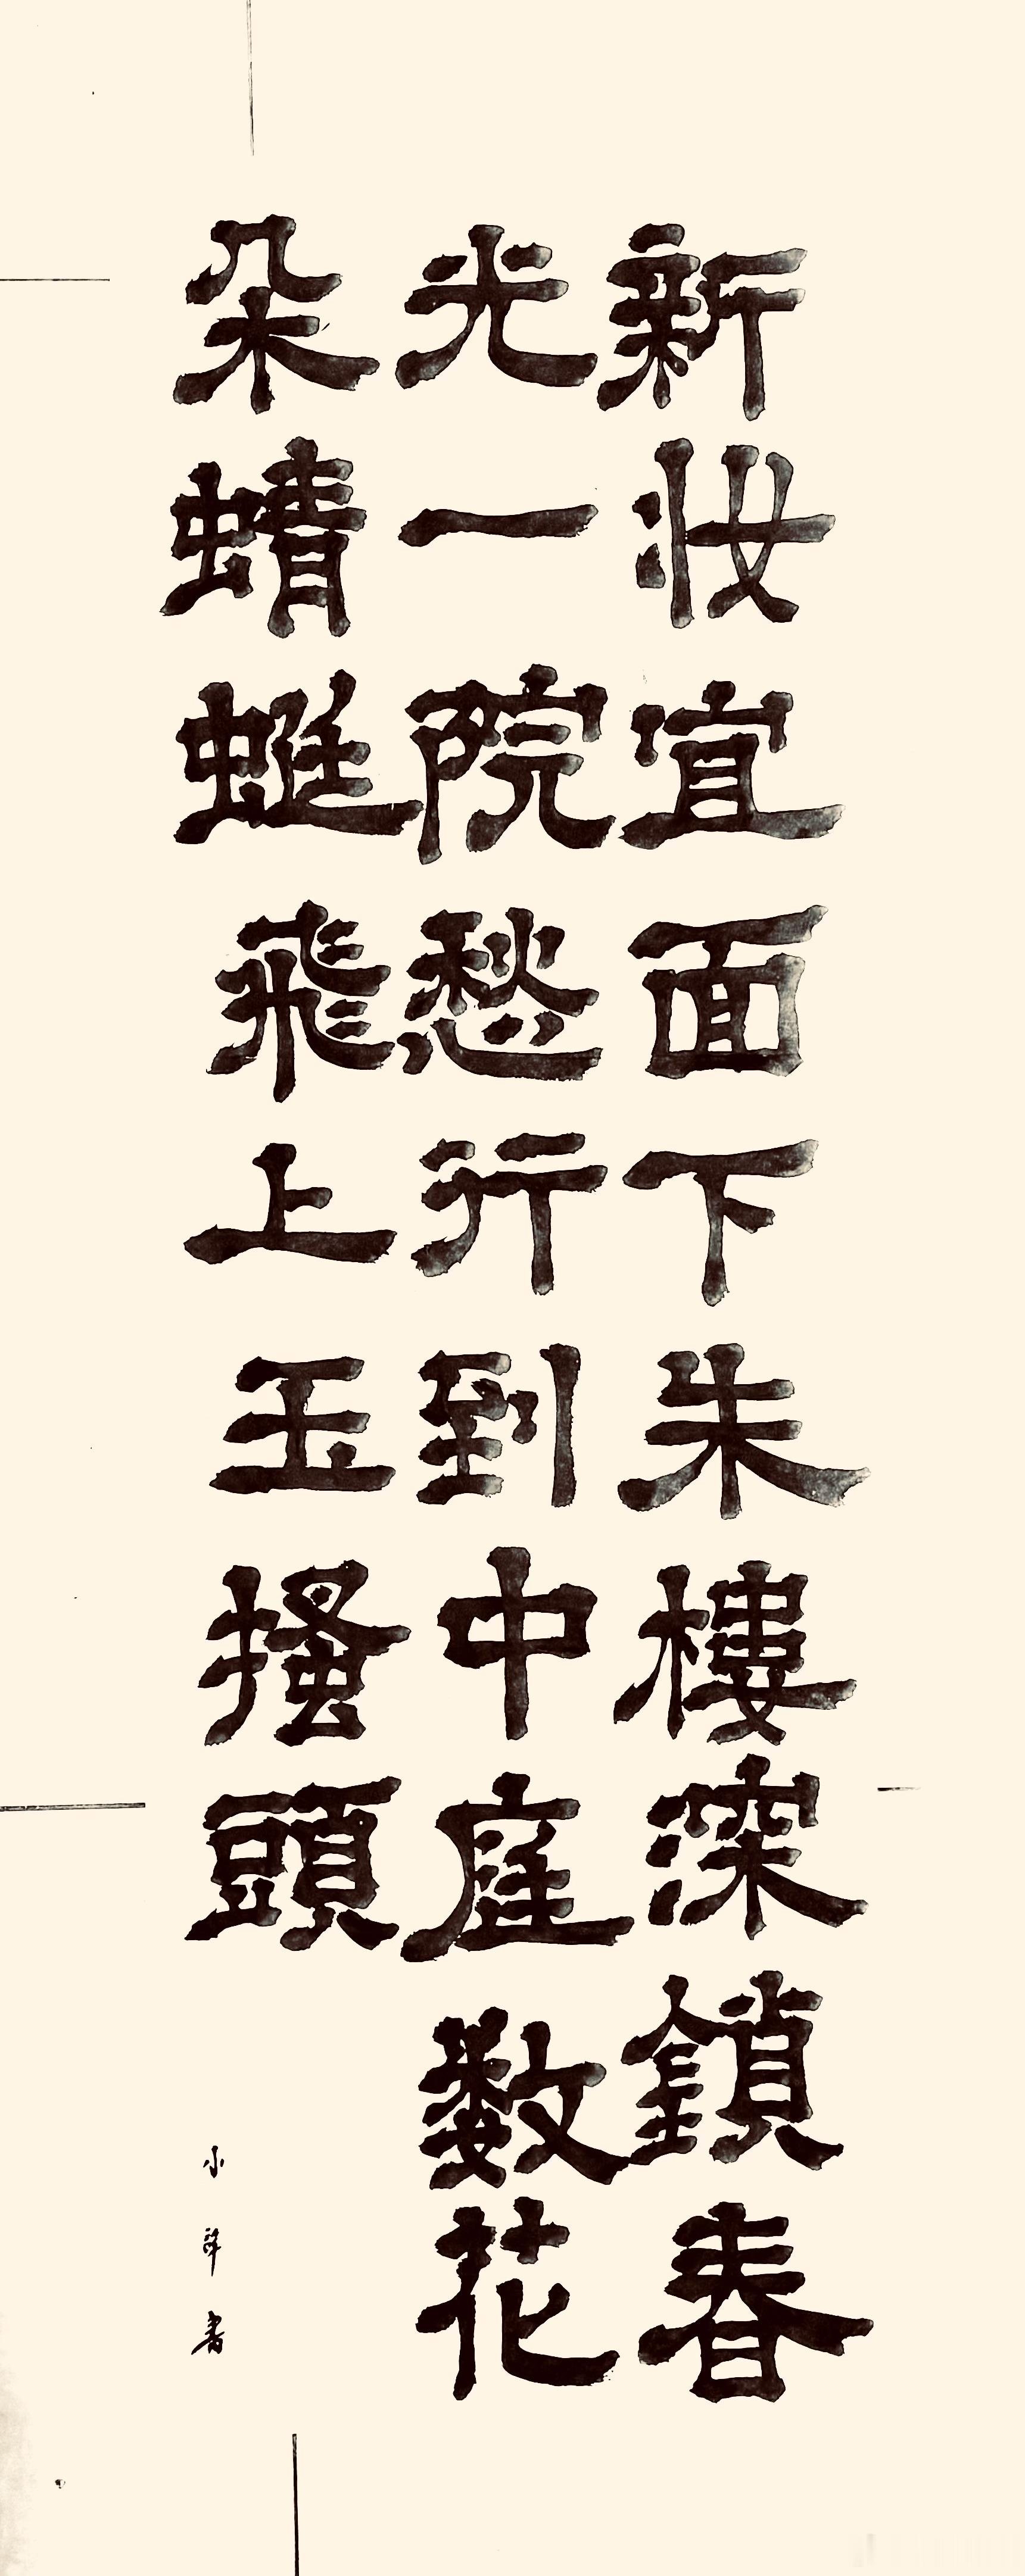 新妝宜面下朱樓深鎖春
光一院愁行到中庭數花
朵蜻蜓飛上玉搔頭
小泙書